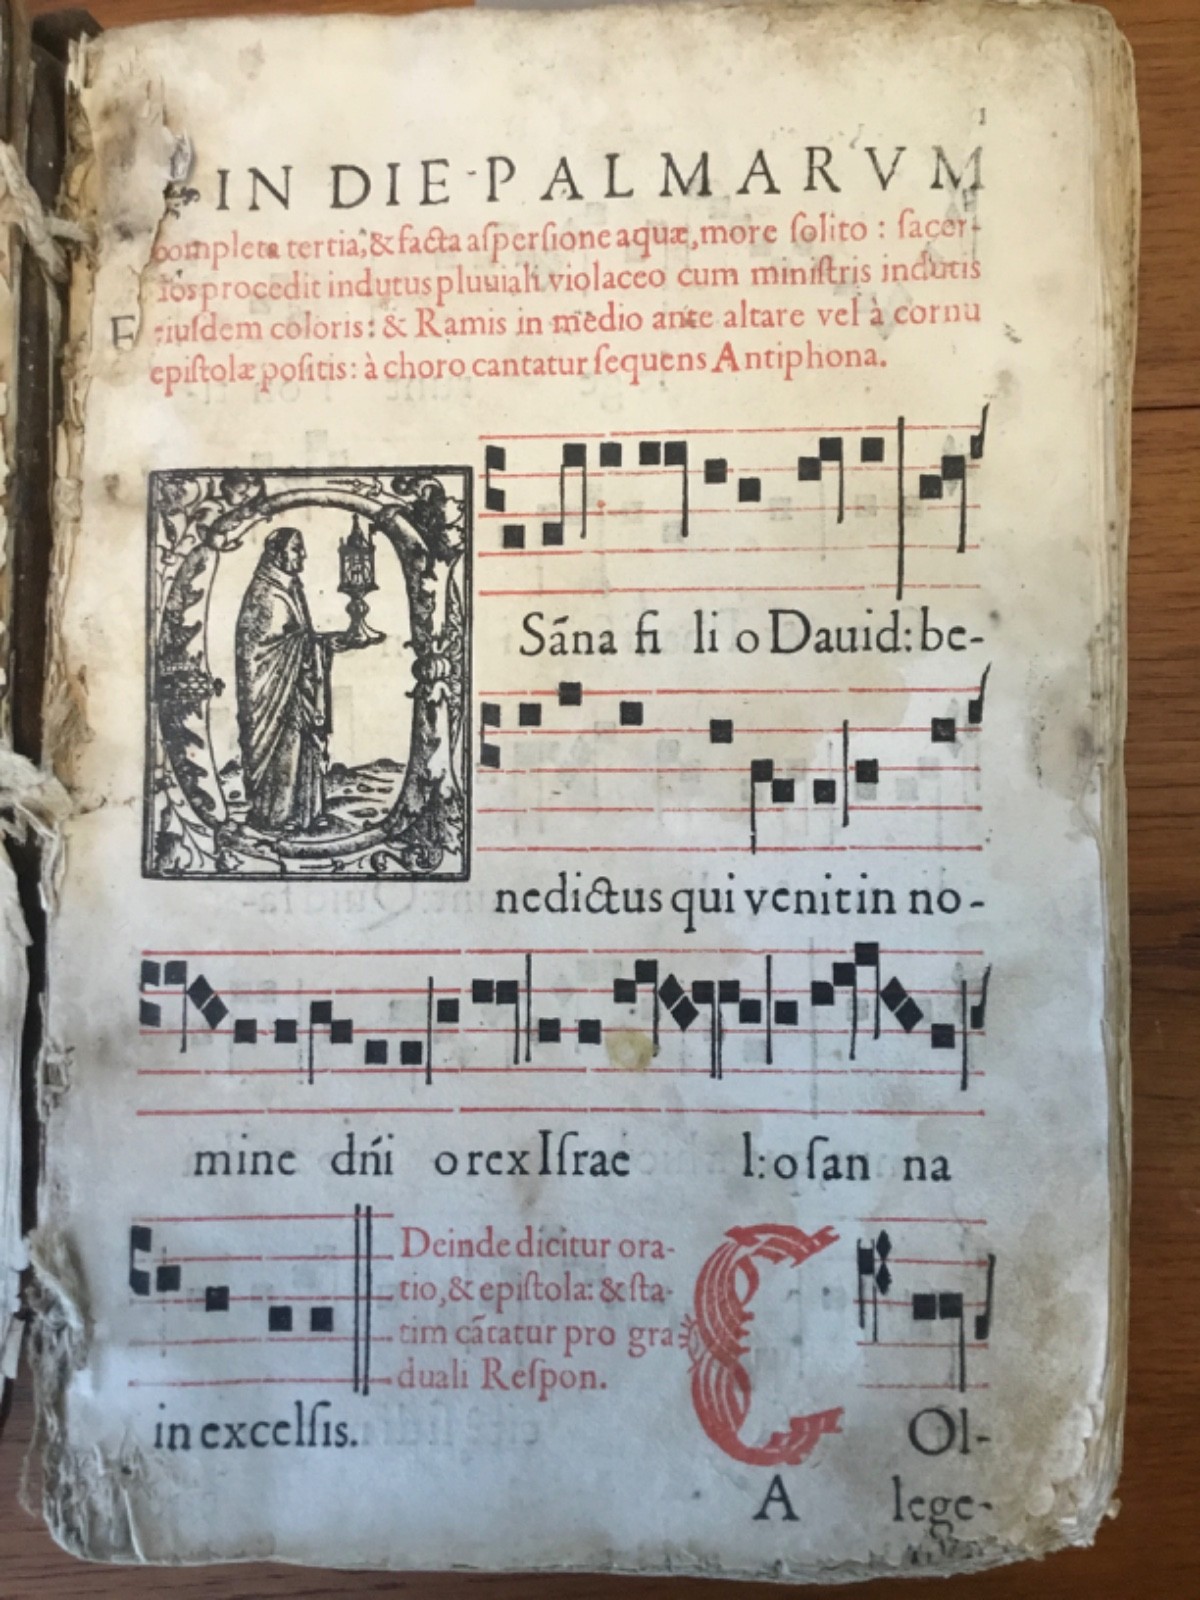 1
IN DIE PALMARVM
completa tertia, & facta aſperſione aquæ, more ſolito : ſacer-
dos procedit indutus pluuiali violaceo cum miniſtris indutis
eiuſdem coloris: & Ramis in medio ante altare vel à cornu
epiſtolæ poſitis: à choro cantatur ſequens Antiphona.
O
Sāna fi li o Dauid: be-
nedictus qui venit in no-
mine dńi o rex Iſrae l: o ſan na
Deinde dicitur ora-
tio, & epiſtola: & ſta-
tim cātatur pro gra
duali Reſpon.
in excelſis.
C
Ol-
A lege-